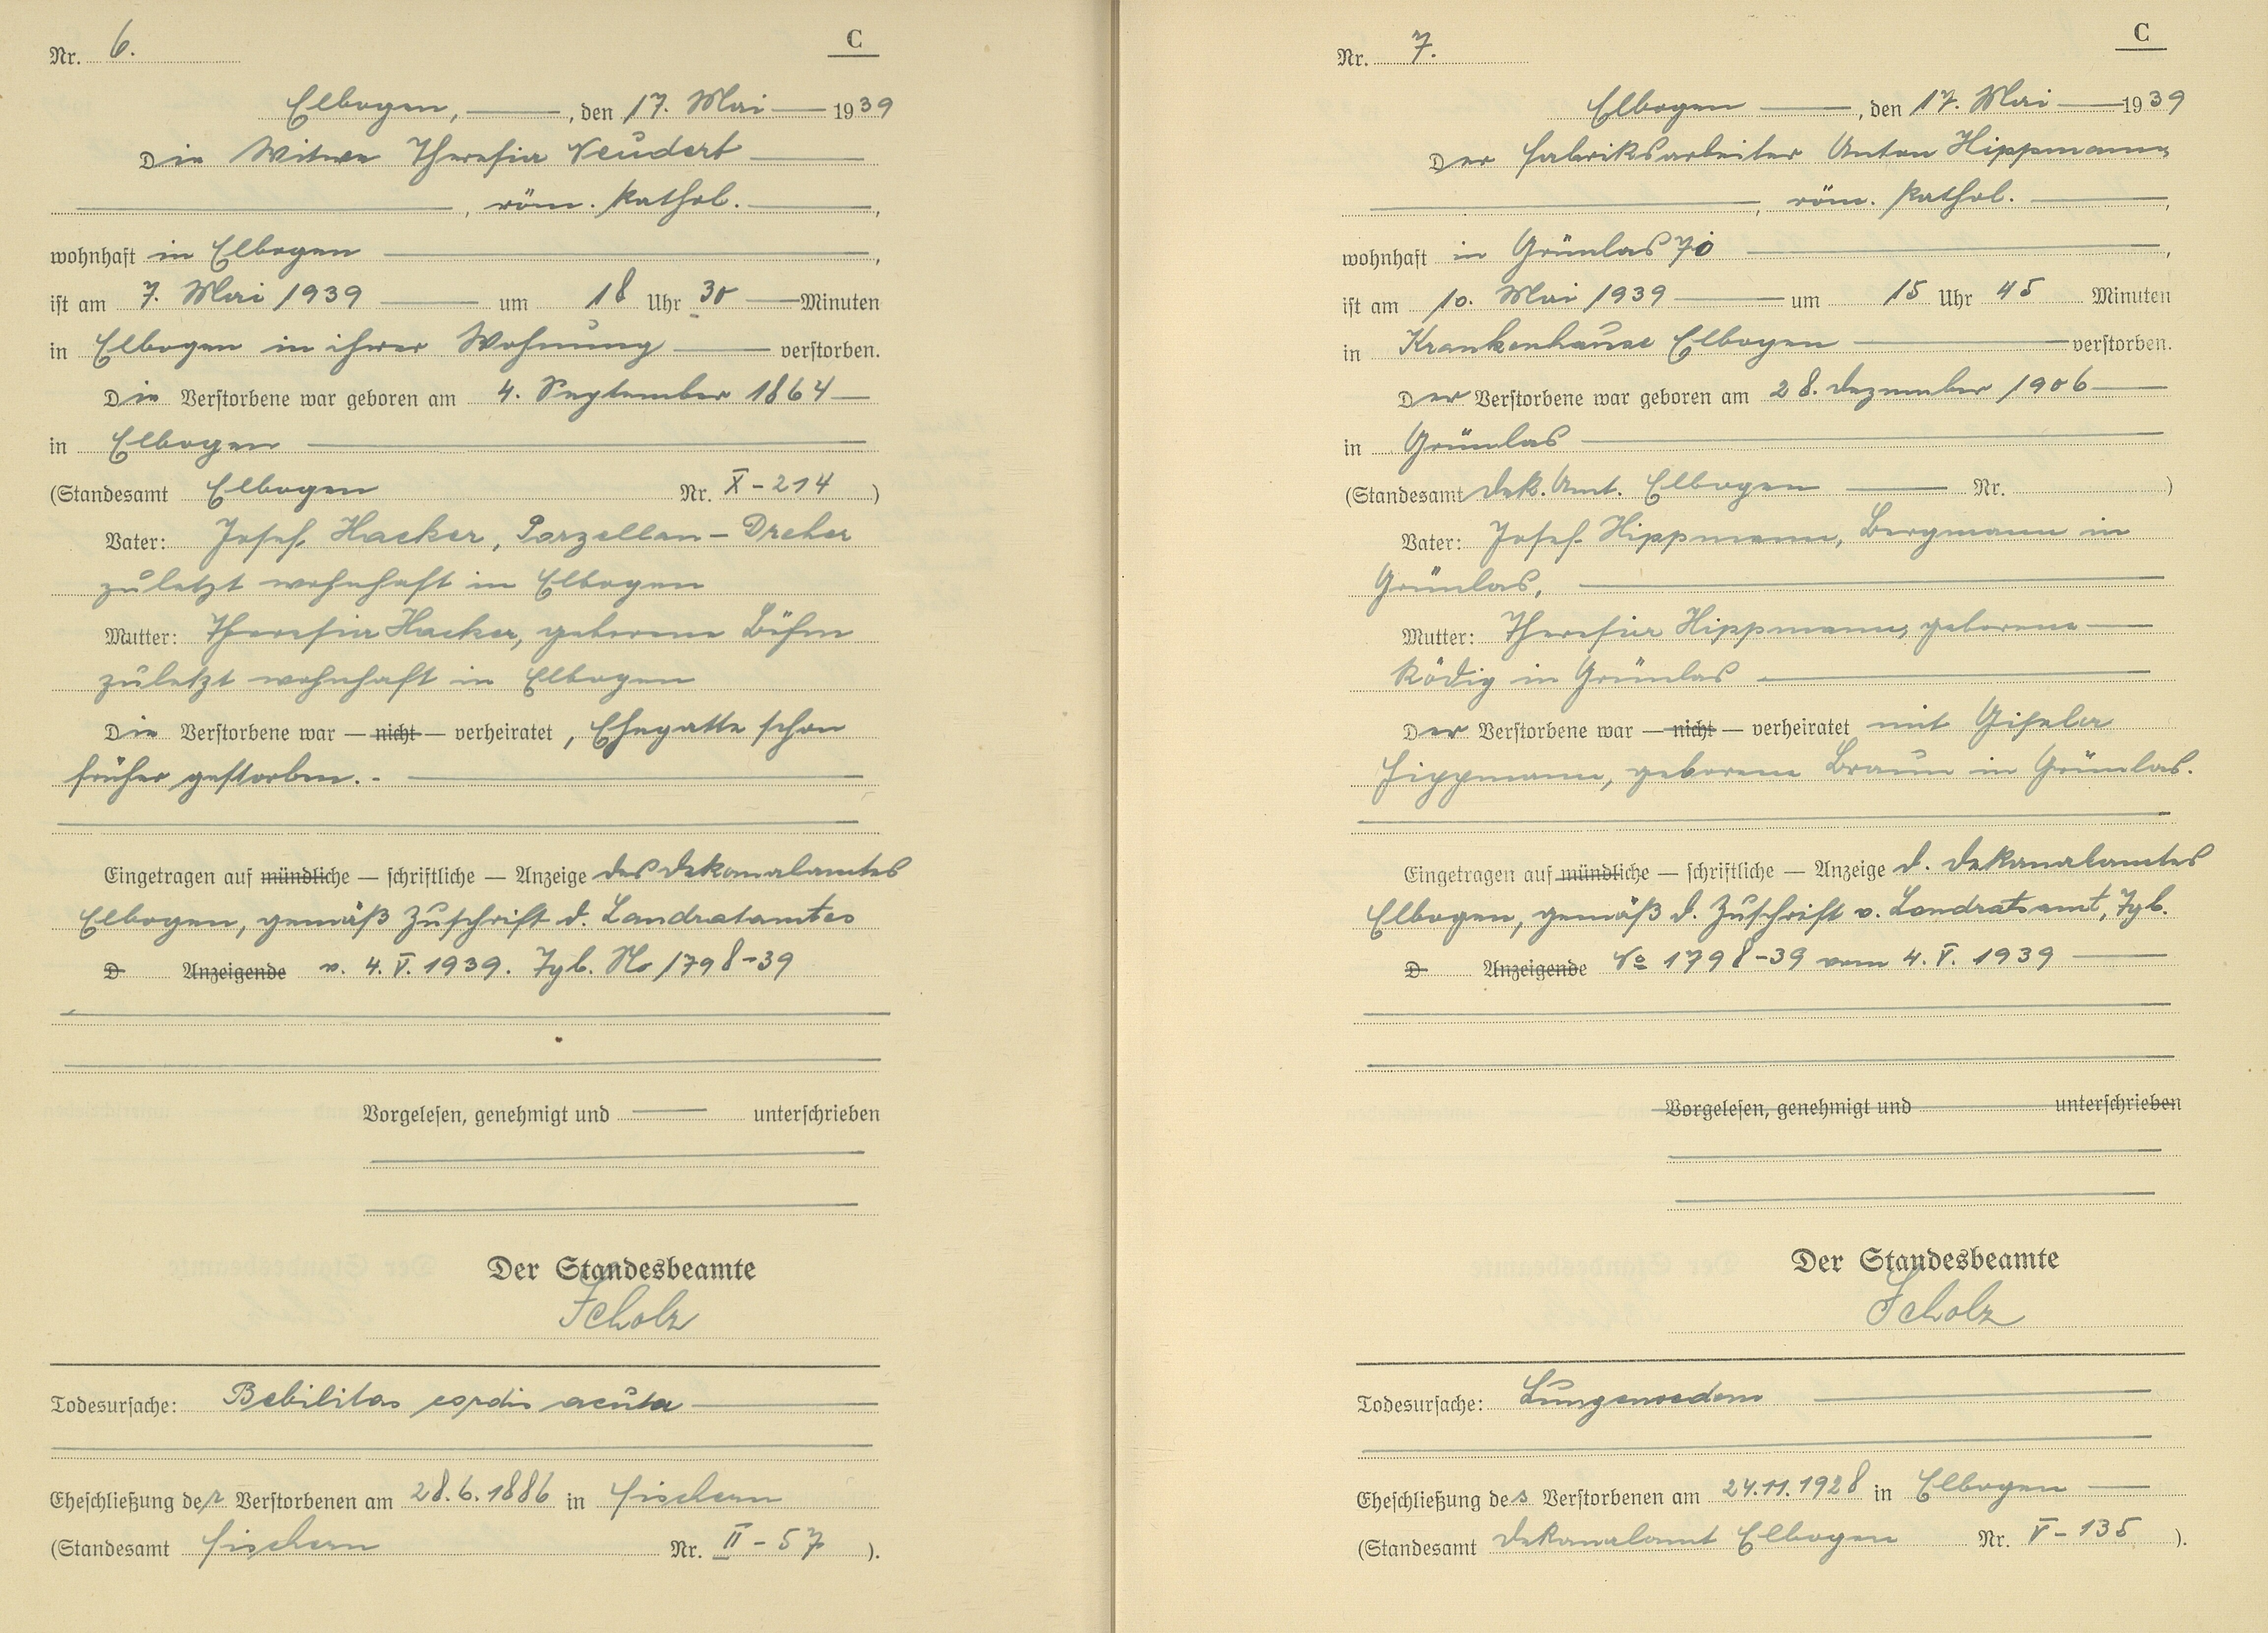 Nr. 6.
C
Elbogen, den 17. Mai 1939
Die Witwe Theresia Neudert
, röm. kathol.,
wohnhaft in Elbogen,
ist am 7. Mai 1939 um 18 Uhr 30 Minuten
in Elbogen in ihrer Wohnung verstorben.
Die Verstorbene war geboren am 4. September 1864
in Elbogen
(Standesamt Elbogen Nr. X-214)
Vater: Josef Hacker, Porzellan-Dreher
zuletzt wohnhaft in Elbogen
Mutter: Theresia Hacker, geborene Böhm
zuletzt wohnhaft in Elbogen
Die Verstorbene war — nicht — verheiratet, Ehegatte schon
früher gestorben.-
Eingetragen auf mündliche — schriftliche — Anzeige des Dekanalamtes
Elbogen, gemäß Zuschrift d. Landratamtes
D Anzeigende v. 4. V. 1939. Tgb. No 1798-39
Vorgelesen, genehmigt und unterschrieben
Der Standesbeamte
Scholz
Todesursache: Debilitas cordis acuta
Eheschließung der Verstorbenen am 28.6.1886 in Fischern
(Standesamt Fischern Nr. II-57).
Nr. 7.
C
Elbogen, den 17. Mai 1939
Der Fabriksarbeiter Anton Hippmann
, röm. kathol.,
wohnhaft in Grünlas 70,
ist am 10. Mai 1939 um 15 Uhr 45 Minuten
in Krankenhause Elbogen verstorben.
Der Verstorbene war geboren am 28. Dezember 1906
in Grünlas
(Standesamt Dek. Amt. Elbogen Nr. )
Vater: Josef Hippmann, Bergmann in
Grünlas,
Mutter: Theresia Hippmann, geborene
Ködig in Grünlas
Der Verstorbene war — nicht — verheiratet mit Gisela
Hippmann, geborene Braun in Grünlas.
Eingetragen auf mündliche — schriftliche — Anzeige d. Dekanalamtes
Elbogen, gemäß d. Zuschrift v. Landratsamt, Tgb.
D Anzeigende No 1798-39 vom 4. V. 1939
Vorgelesen, genehmigt und unterschrieben
Der Standesbeamte
Scholz
Todesursache: Lungenoedem
Eheschließung des Verstorbenen am 24.11.1928 in Elbogen
(Standesamt Dekanalamt Elbogen Nr. V-135).